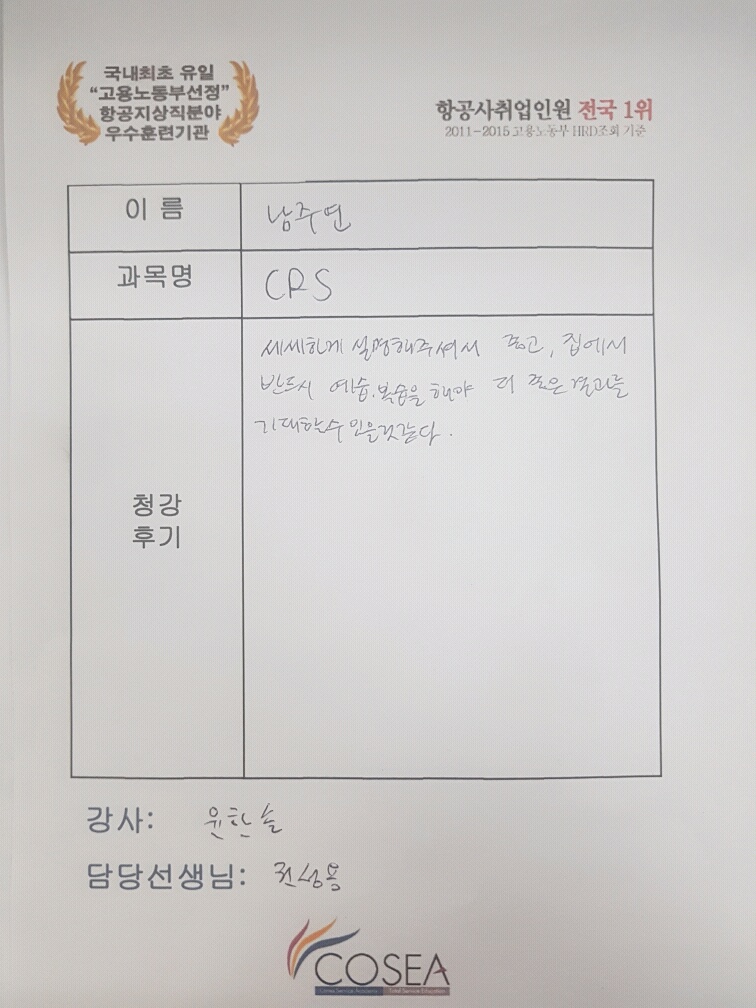 국내최초 유일
“고용노동부선정”
항공지상직분야
우수훈련기관
항공사취업인원 전국 1위
2011-2015 고용노동부 HRD조회 기준
이 름
남주연
과목명
CRS
세세하게 설명해주셔서 좋고, 집에서
반드시 예습.복습을 해야 더 좋은 결과를
기대할수 있을것같다.
청강
후기
강사: 윤한솔
담당선생님: 권성용
COSEA